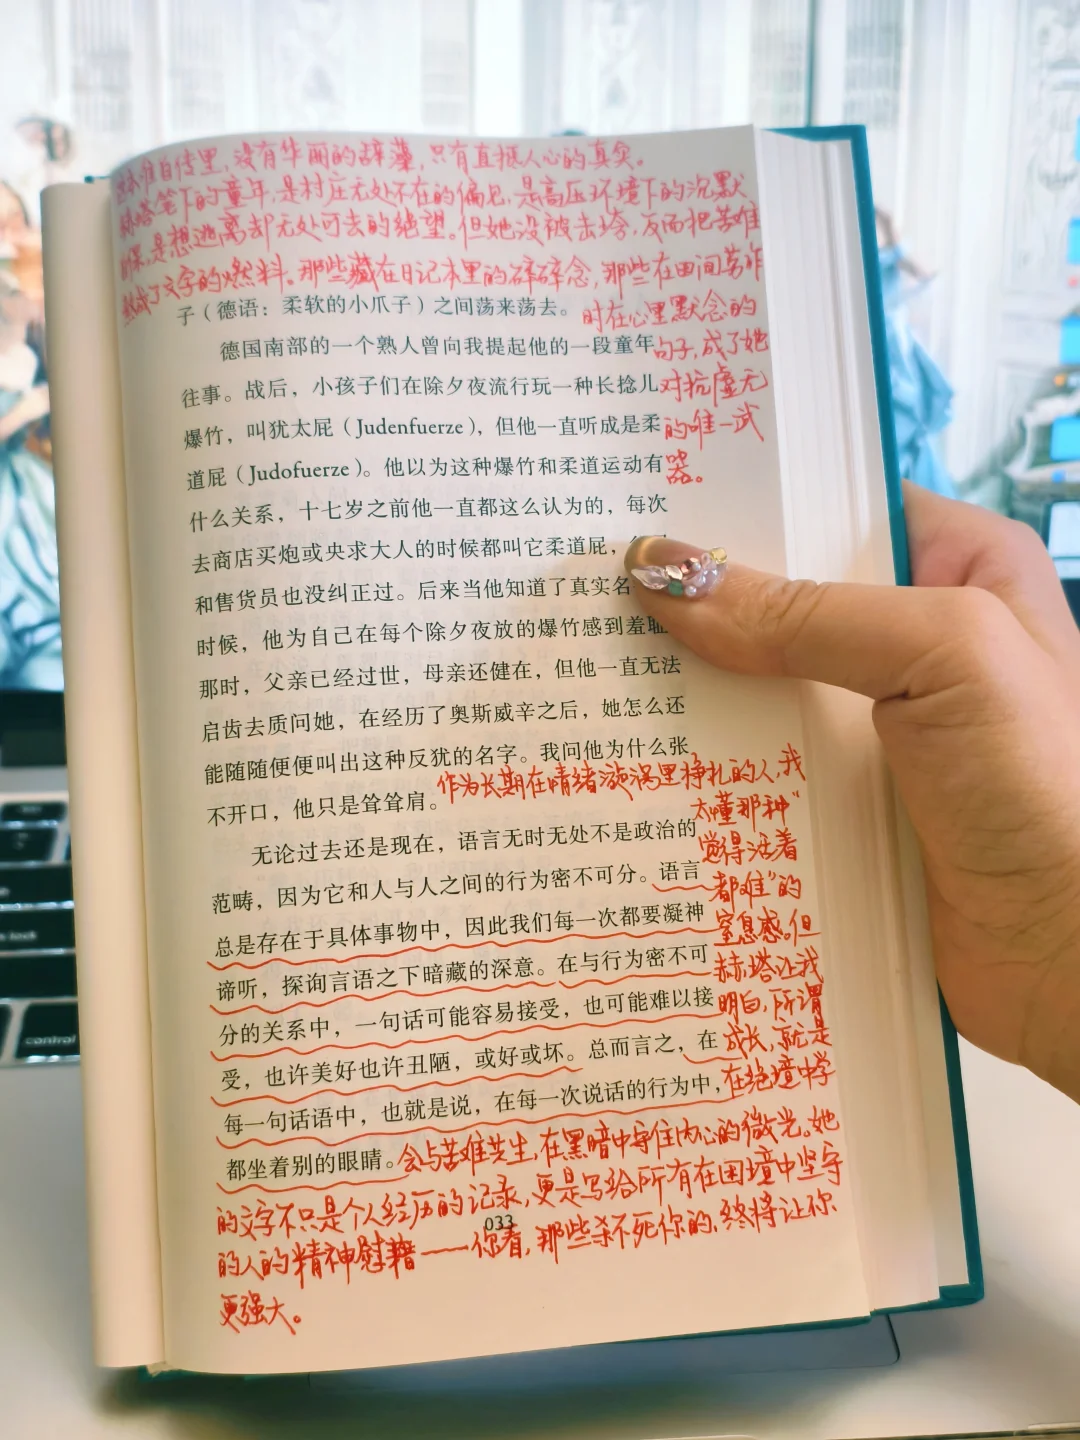 这本准自传里，没有华丽的辞藻，只有直抵人心的真实。
赫塔笔下的童年，是村庄无处不在的偏见，是高压环境下的沉默
是想逃离却无处可去的绝望。但她没被击垮，反而把苦难
成了文字的燃料。那些藏在日记本里的碎碎念，那些在田间劳作
时在心里默念的
句子，成了她
对抗虚无
的唯一武
器。
子（德语：柔软的小爪子）之间荡来荡去。
德国南部的一个熟人曾向我提起他的一段童年
往事。战后，小孩子们在除夕夜流行玩一种长捻儿
爆竹，叫犹太屁（Judenfuerze），但他一直听成是柔
道屁（Judofuerze）。他以为这种爆竹和柔道运动有
什么关系，十七岁之前他一直都这么认为的，每次
去商店买炮或央求大人的时候都叫它柔道屁，
和售货员也没纠正过。后来当他知道了真实名
时候，他为自己在每个除夕夜放的爆竹感到羞耻
那时，父亲已经过世，母亲还健在，但他一直无法
启齿去质问她，在经历了奥斯威辛之后，她怎么还
能随随便便叫出这种反犹的名字。我问他为什么张
不开口，他只是耸耸肩。
无论过去还是现在，语言无时无处不是政治的
范畴，因为它和人与人之间的行为密不可分。语言
总是存在于具体事物中，因此我们每一次都要凝神
谛听，探询言语之下暗藏的深意。在与行为密不可
分的关系中，一句话可能容易接受，也可能难以接
受，也许美好也许丑陋，或好或坏。总而言之，在
每一句话语中，也就是说，在每一次说话的行为中，
都坐着别的眼睛。
作为长期在情绪漩涡里挣扎的人，我
太懂那种“
觉得活着
都难”的
窒息感。但
赫塔让我
明白，所谓
成长，就是
在绝境中学
会与苦难共生，在黑暗中守住内心的微光。她
的文字不只是个人经历的记录，更是写给所有在困境中坚守
的人的精神慰藉——你看，那些杀不死你的，终将让你
更强大。
033